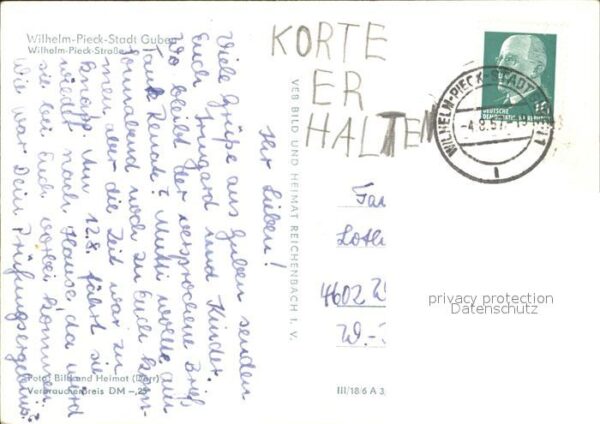 Wilhelm-Pieck-Stadt Guben
Wilhelm-Pieck-Straße
KORTE
ER
HALTEN
WILHELM-PIECK-STADT
DEUTSCHE
DEMOKRATISCHE REPUBLIK
1
Ihr Lieben!
Viele Grüße aus Guben senden
Euch Irmgard und Kinder.
Wo bleibt der versprochene Brief
Tante Renate? Mutti wollte am
Sonnabend noch zu Euch kom-
men, aber die Zeit war zu
knapp. Am 12.8. fährt sie
wieder nach Hause, da wird
sie bei Euch vorbei kommen.
Wie war Dein Prüfungsergebnis?
VEB BILD UND HEIMAT REICHENBACH I. V.
Loth
4602 W
W.-
privacy protection
Datenschutz
Foto: Bild und Heimat (Darr)
Verbraucherpreis DM -,25
III/18/6 A 3